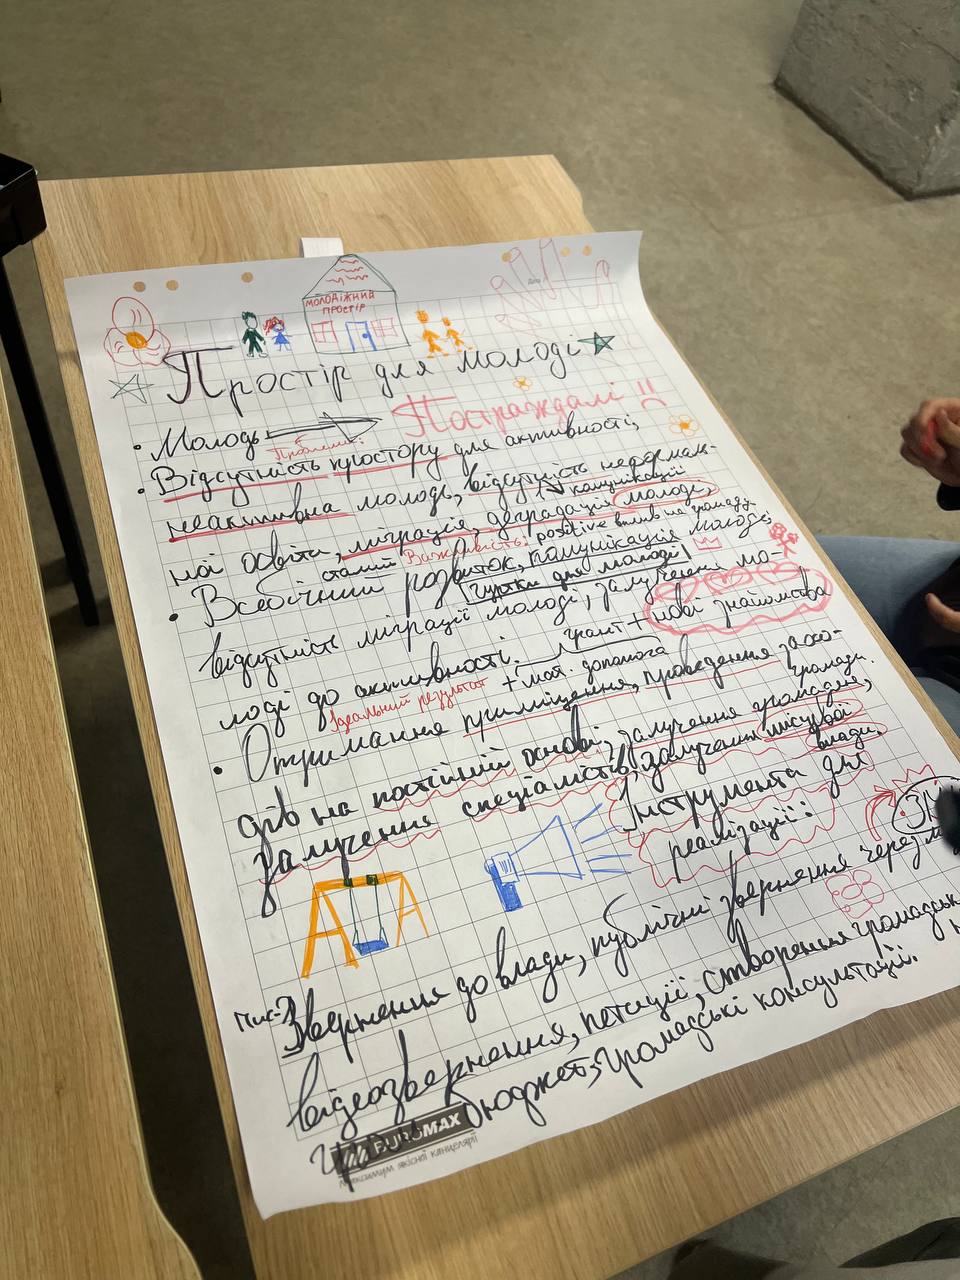 МОЛОДІЖНИЙ
ПРОСТІР
Простір для молоді
Постраждалі
• Молодь
Проблеми:
• Відсутність простору для активності,
неактивна молодь, відсутність неформаль-
комунікації
ної освіти, міграція, деградація молоді,
сталий Важливість: positive вплив на громаду
• Всебічний розвиток, комунікація молоді,
гуртки для молоді
відсутність міграції молоді, залучення мо-
грант + нові знайомства
лоді до активності.
Ідеальний результат + мат. допомога
• Отримання приміщення, проведення захо-
дів на постійній основі, залучення громадян,
громади.
залучення спеціалістів, залучення місцевої
влади.
Інструменти для
реалізації:
ЗМІ
Звернення до влади, публічні звернення через
відеозвернення, петиції, створення
бюджет, громадські консультації.
BUROMAX
максимум якісної канцелярії